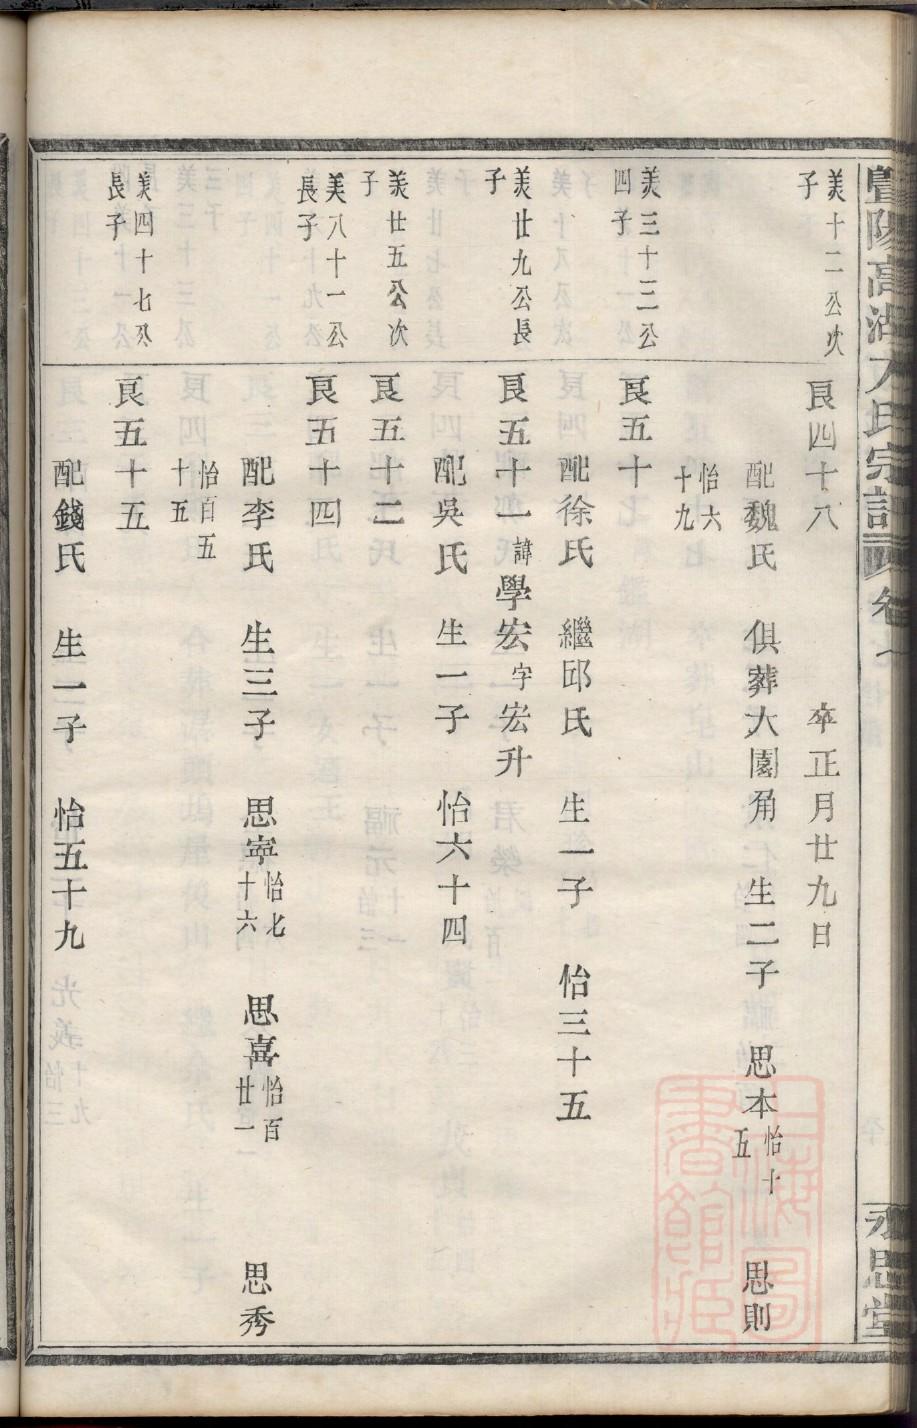 暨陽高湖方氏宗譜 卷一
永思堂
美十二公次子
良四十八 卒正月廿九日
配魏氏 俱葬大園角 生二子 思本怡十五 思則怡六十九
美三十三公四子
良五十
配徐氏 繼邱氏 生一子 怡三十五
美廿九公長子
良五十一諱學宏字宏升
配吳氏 生一子 怡六十四
美廿五公次子
良五十二
美八十一公長子
良五十四
配李氏 生三子 思寧怡七十六 思喜怡百廿一 思秀怡百五十五
美四十七公長子
良五十五
配錢氏 生一子 怡五十九